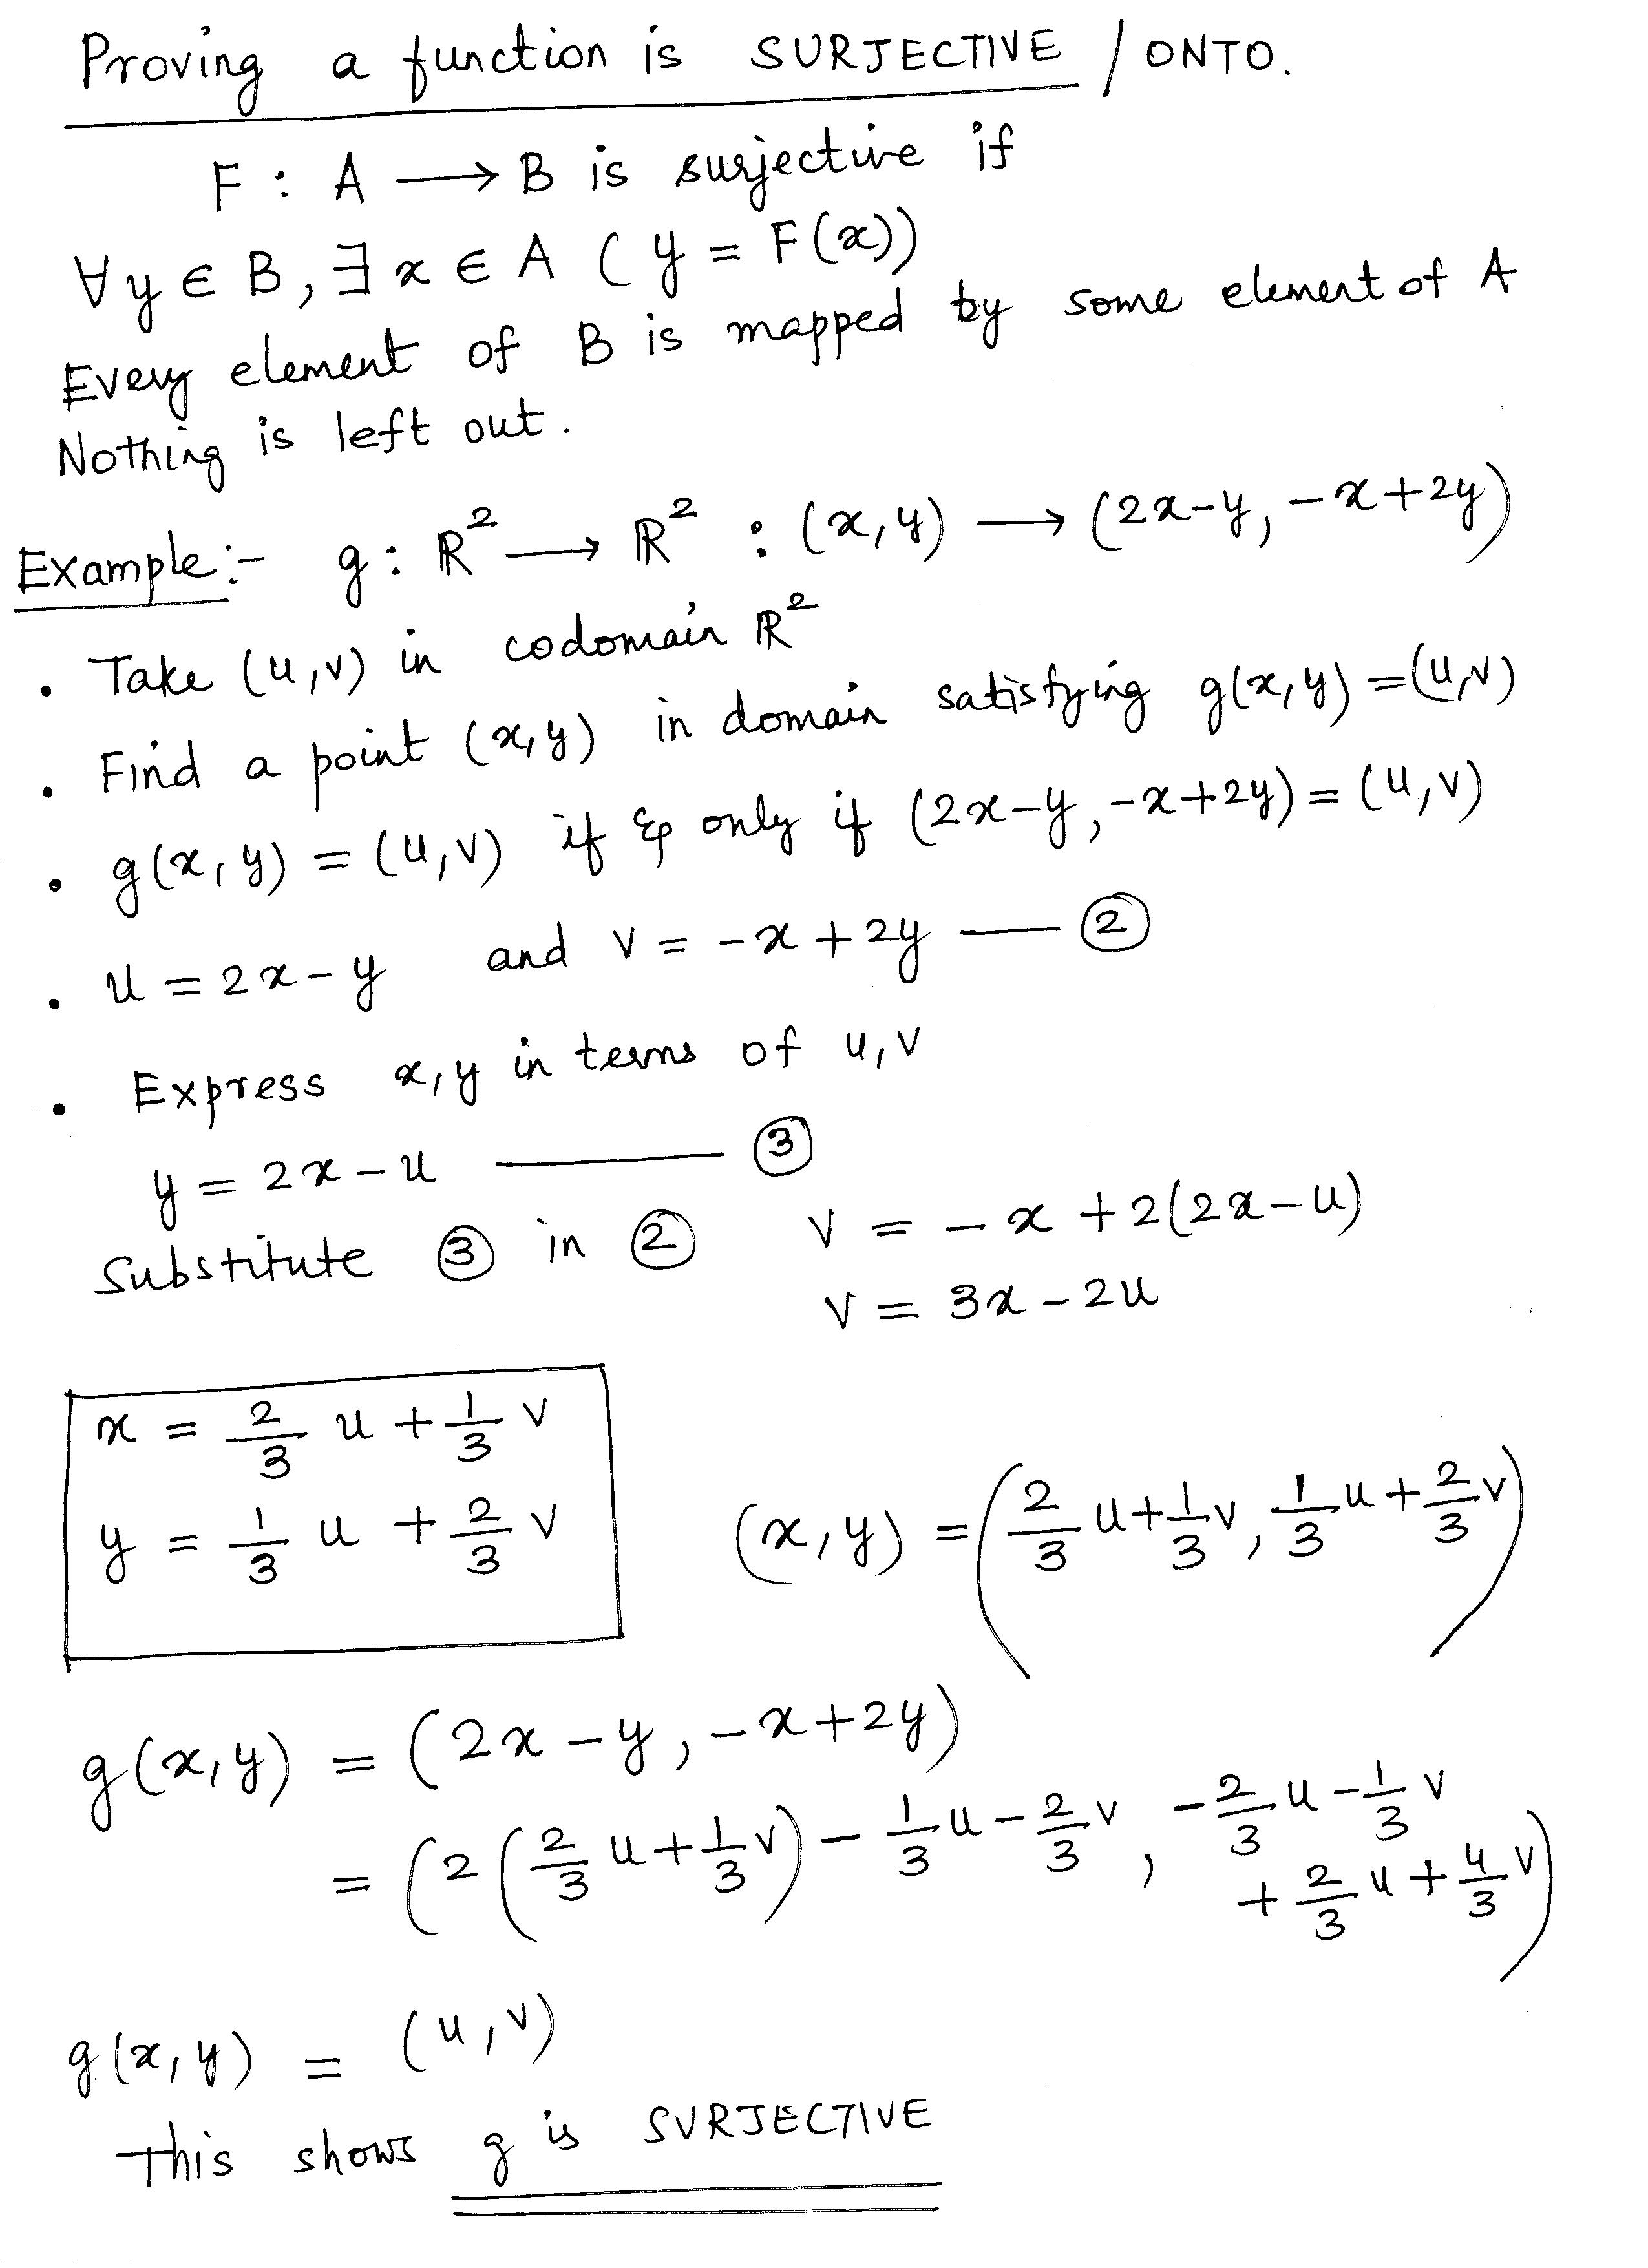 Proving a function is SURJECTIVE / ONTO.
F : A ⟶ B is surjective if
∀ y ∈ B, ∃ x ∈ A ( y = F(x))
Every element of B is mapped by some element of A
Nothing is left out.
Example:- g : ℝ² ⟶ ℝ² : (x,y) ⟶ (2x-y, -x+2y)
• Take (u,v) in codomain ℝ²
• Find a point (x,y) in domain satisfying g(x,y) = (u,v)
• g(x,y) = (u,v) if & only if (2x-y, -x+2y) = (u,v)
• u = 2x-y and v = -x+2y — ②
• Express x,y in terms of u,v
y = 2x-u — ③
Substitute ③ in ② v = -x +2(2x-u)
v = 3x-2u
x = 2/3 u + 1/3 v
y = 1/3 u + 2/3 v (x,y) = (2/3 u + 1/3 v, 1/3 u + 2/3 v)
g(x,y) = (2x-y, -x+2y)
= (2(2/3 u + 1/3 v) - 1/3 u - 2/3 v, -2/3 u - 1/3 v
+ 2/3 u + 4/3 v)
g(x,y) = (u,v)
This shows g is SURJECTIVE